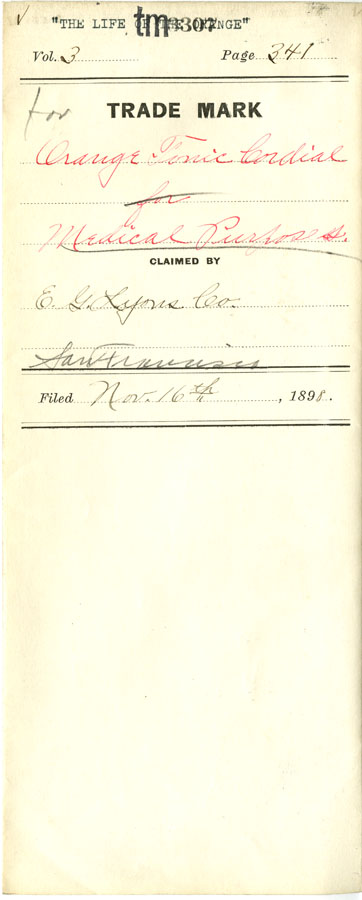 "THE LIFE OF THE ORANGE"
tm 3307
Vol. 3 Page 341
for TRADE MARK
Orange Tonic Cordial
for
Medical Purposes.
CLAIMED BY
E. G. Lyons Co.
San Francisco
Filed Nov. 16th, 1898.